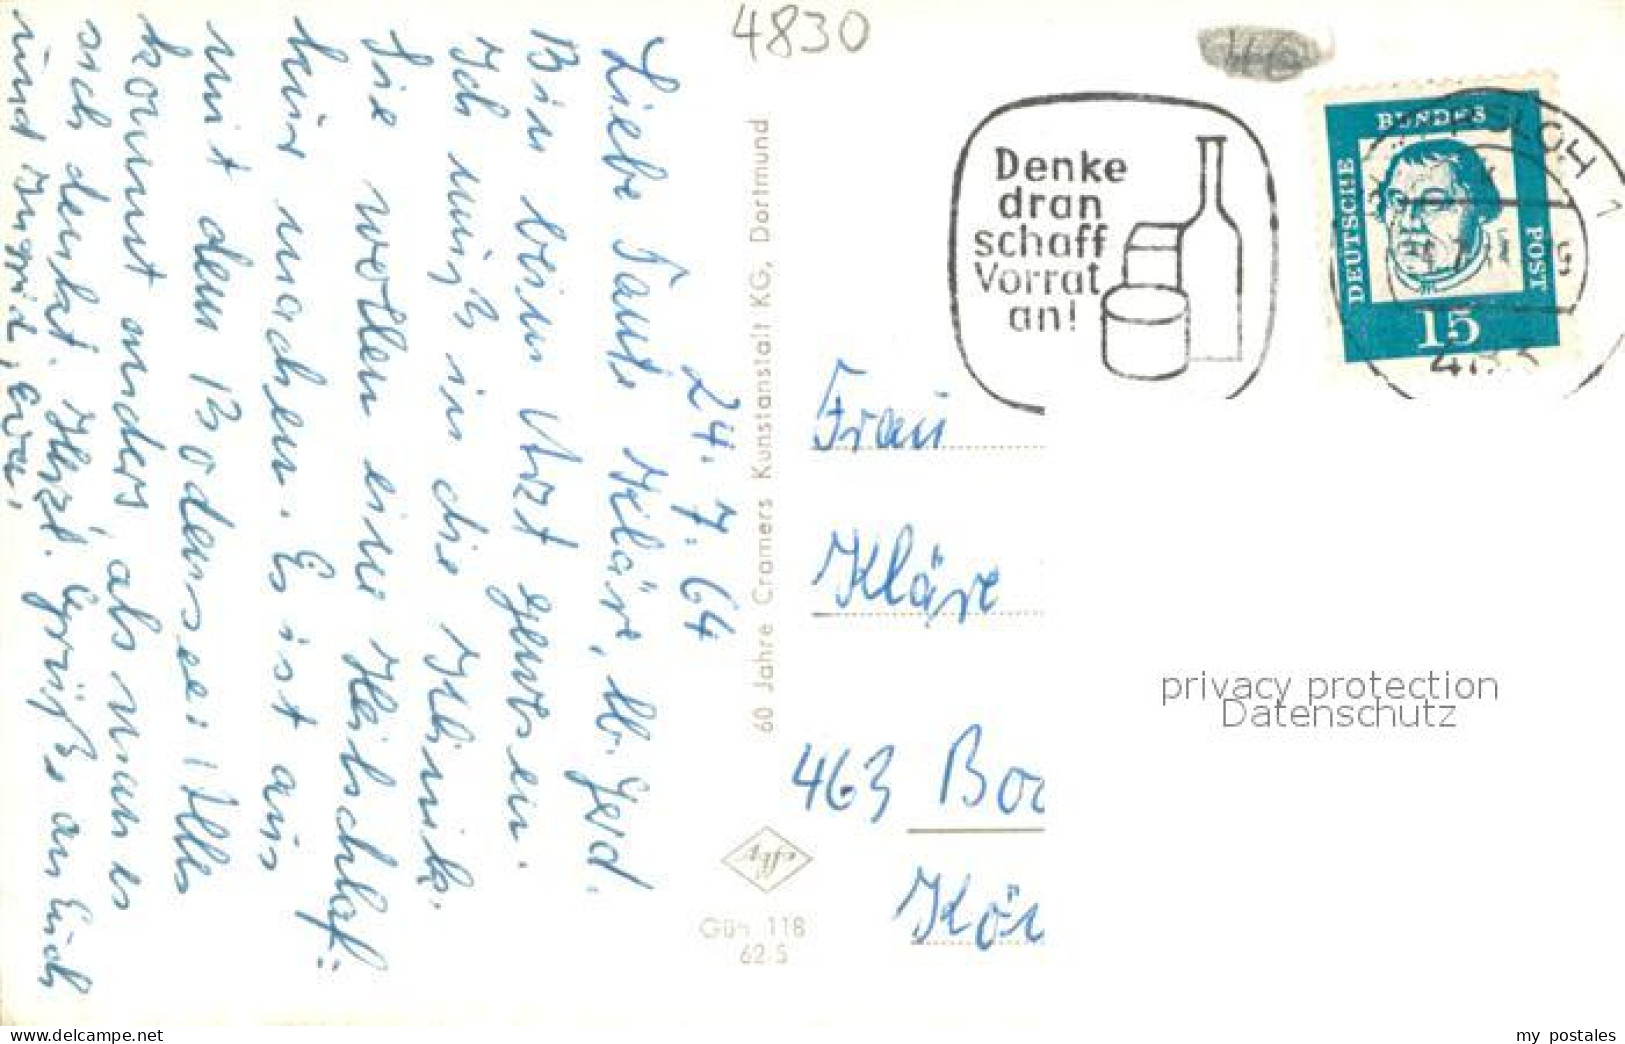 4830
24. 7. 64
Liebe Tante Kläre, lb. Gerd.
Bin beim Arzt gewesen.
Ich muß in die Klinik.
Sie wollen eine Heilschlaf=
kur machen. Es ist aus
mit dem Bodensee! Alles
kommt anders, als man es
sich denkt. Herzl. Grüße an Euch
und Ingrid, Eva.
60 Jahre Cramers Kunstanstalt KG, Dortmund
Güt. 118
62 S
Denke
dran
schaff
Vorrat
an!
DEUTSCHE
BUNDES
POST
15
Frau
Kläre
463 Boc
Kön
privacy protection
Datenschutz
https://www.delcampe.net
my_postales